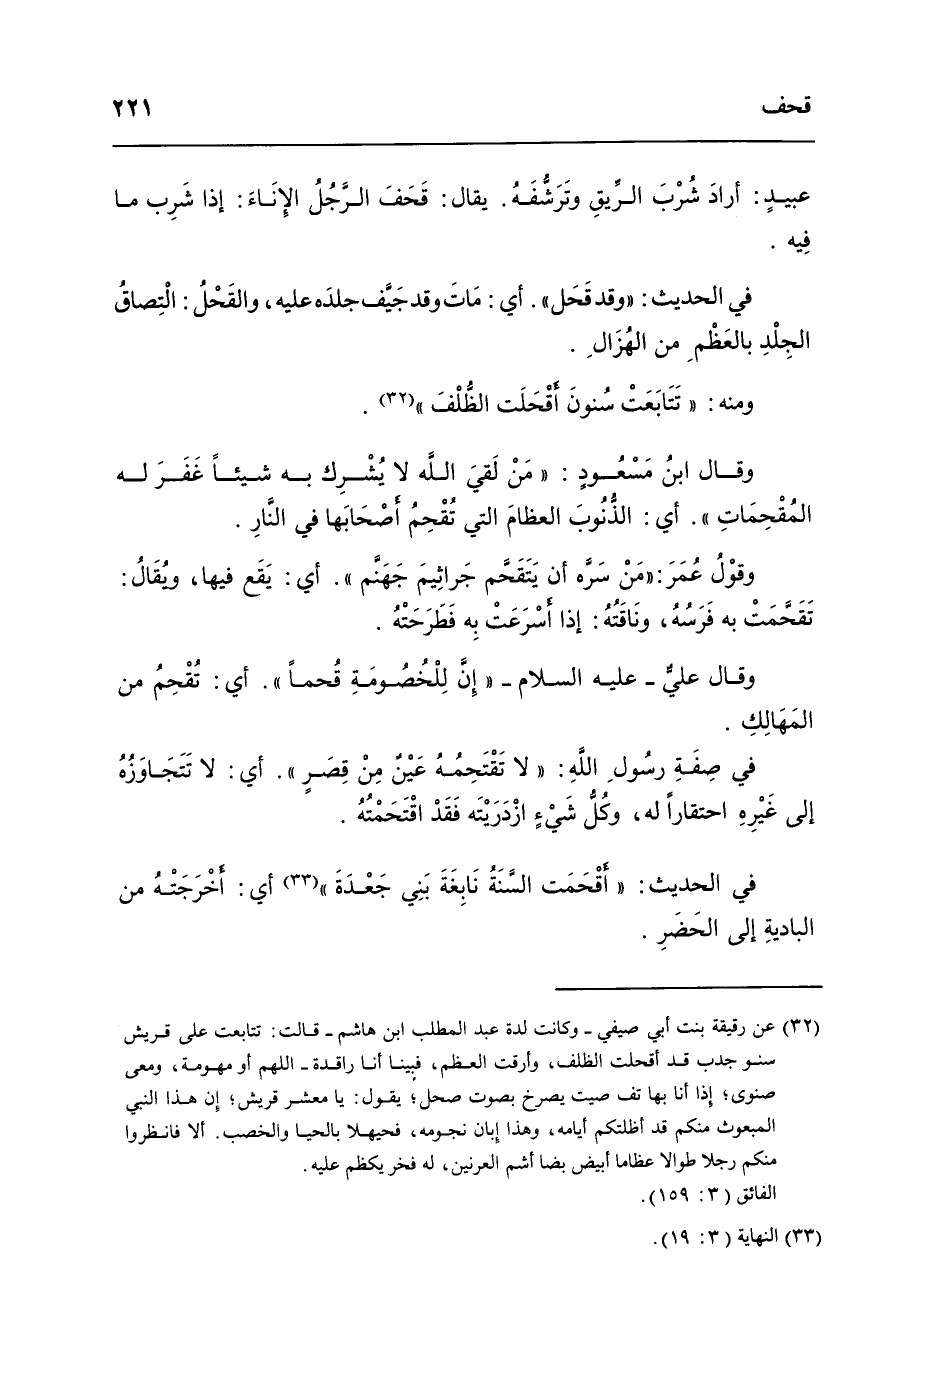 قحف ٢٢١
عبيـدٍ : أرادَ شُرْبَ الـرِّيقِ وتَرَشُّفَـهُ . يقال : قَحَفَ الـرَّجُلُ الإِنَـاءَ : إذا شَرِب مـا
فِيه .
في الحديث : «وقد قَحَل» . أي : مَاتَ وقد جَيَّف جلدَه عليه ، والقَحْلُ : الْتِصاقُ
الجِلْدِ بالعَظْمِ من الهُزَالِ .
ومنه : « تَتَابَعَتْ سُنونَ أَقْحَلَت الظُّلْفَ »(٣٢) .
وقــال ابنُ مَسْعُــودٍ : « مَنْ لَقيَ اللَّه لا يُشْــرِك بــه شيئــاً غَفَــرَ لــه
المُقْحِمَاتِ » . أي : الذُّنُوبَ العظامَ التي تُقْحِمُ أَصْحَابَها في النَّارِ .
وقوْلُ عُمَرَ :«مَنْ سَرَّه أن يَتَقَحَّم جَراثِيمَ جَهَنَّم » . أي : يَقَع فيها ، ويُقَالُ :
تَقَحَّمَتْ به فَرَسُهُ ، ونَاقَتُهُ : إذا أَسْرَعَتْ بِه فَطَرَحَتْهُ .
وقـال عليٌّ ـ عليـه السـلام ـ « إنَّ لِلْخُصُـومَـةِ قُحمـاً » . أي : تُقْحِمُ من
المَهَالِكِ .
في صِفَـةِ رسُولِ اللَّهِ : « لا تَقْتَحِمُـهُ عَيْنٌ مِنْ قِصَـرٍ » . أي : لا تَتَجَـاوَزُهُ
إلى غَيْرِهِ احتقاراً له ، وكُلُّ شَيْءٍ ازْدَرَيْتَه فَقَدْ اقْتَحَمْتُهُ .
في الحديث : « أَقْحَمَت السَّنَةُ نَابِغَةَ بَنِي جَعْـدَةَ »(٣٣) أي : أَخْرَجَتْـهُ من
الباديةِ إلى الحَضَرِ .
(٣٢) عن رقيقة بنت أبي صيفي ـ وكانت لدة عبد المطلب ابن هاشم ـ قـالت : تتابعت على قـريش
سنـو جدب قـد أقحلت الظلف ، وأرقت العـظم ، فبينـا أنـا راقـدة ـ اللهم أو مهـومـة ، ومعى
صنوى ؛ إذا أنا بها تف صيت يصرخ بصوت صحل ؛ يقـول : يا معشـر قريش ؛ إن هـذا النبي
المبعوث منكم قد أظلتكم أيامه ، وهذا إبان نجـومه ، فحيهـلا بالحيـا والخصب . ألا فانـظروا
منكم رجلا طوالا عظاما أبيض بضا أشم العرنين ، له فخر يكظم عليه .
الفائق ( ٣ : ١٥٩ ) .
(٣٣) النهاية ( ٣ : ١٩ ) .